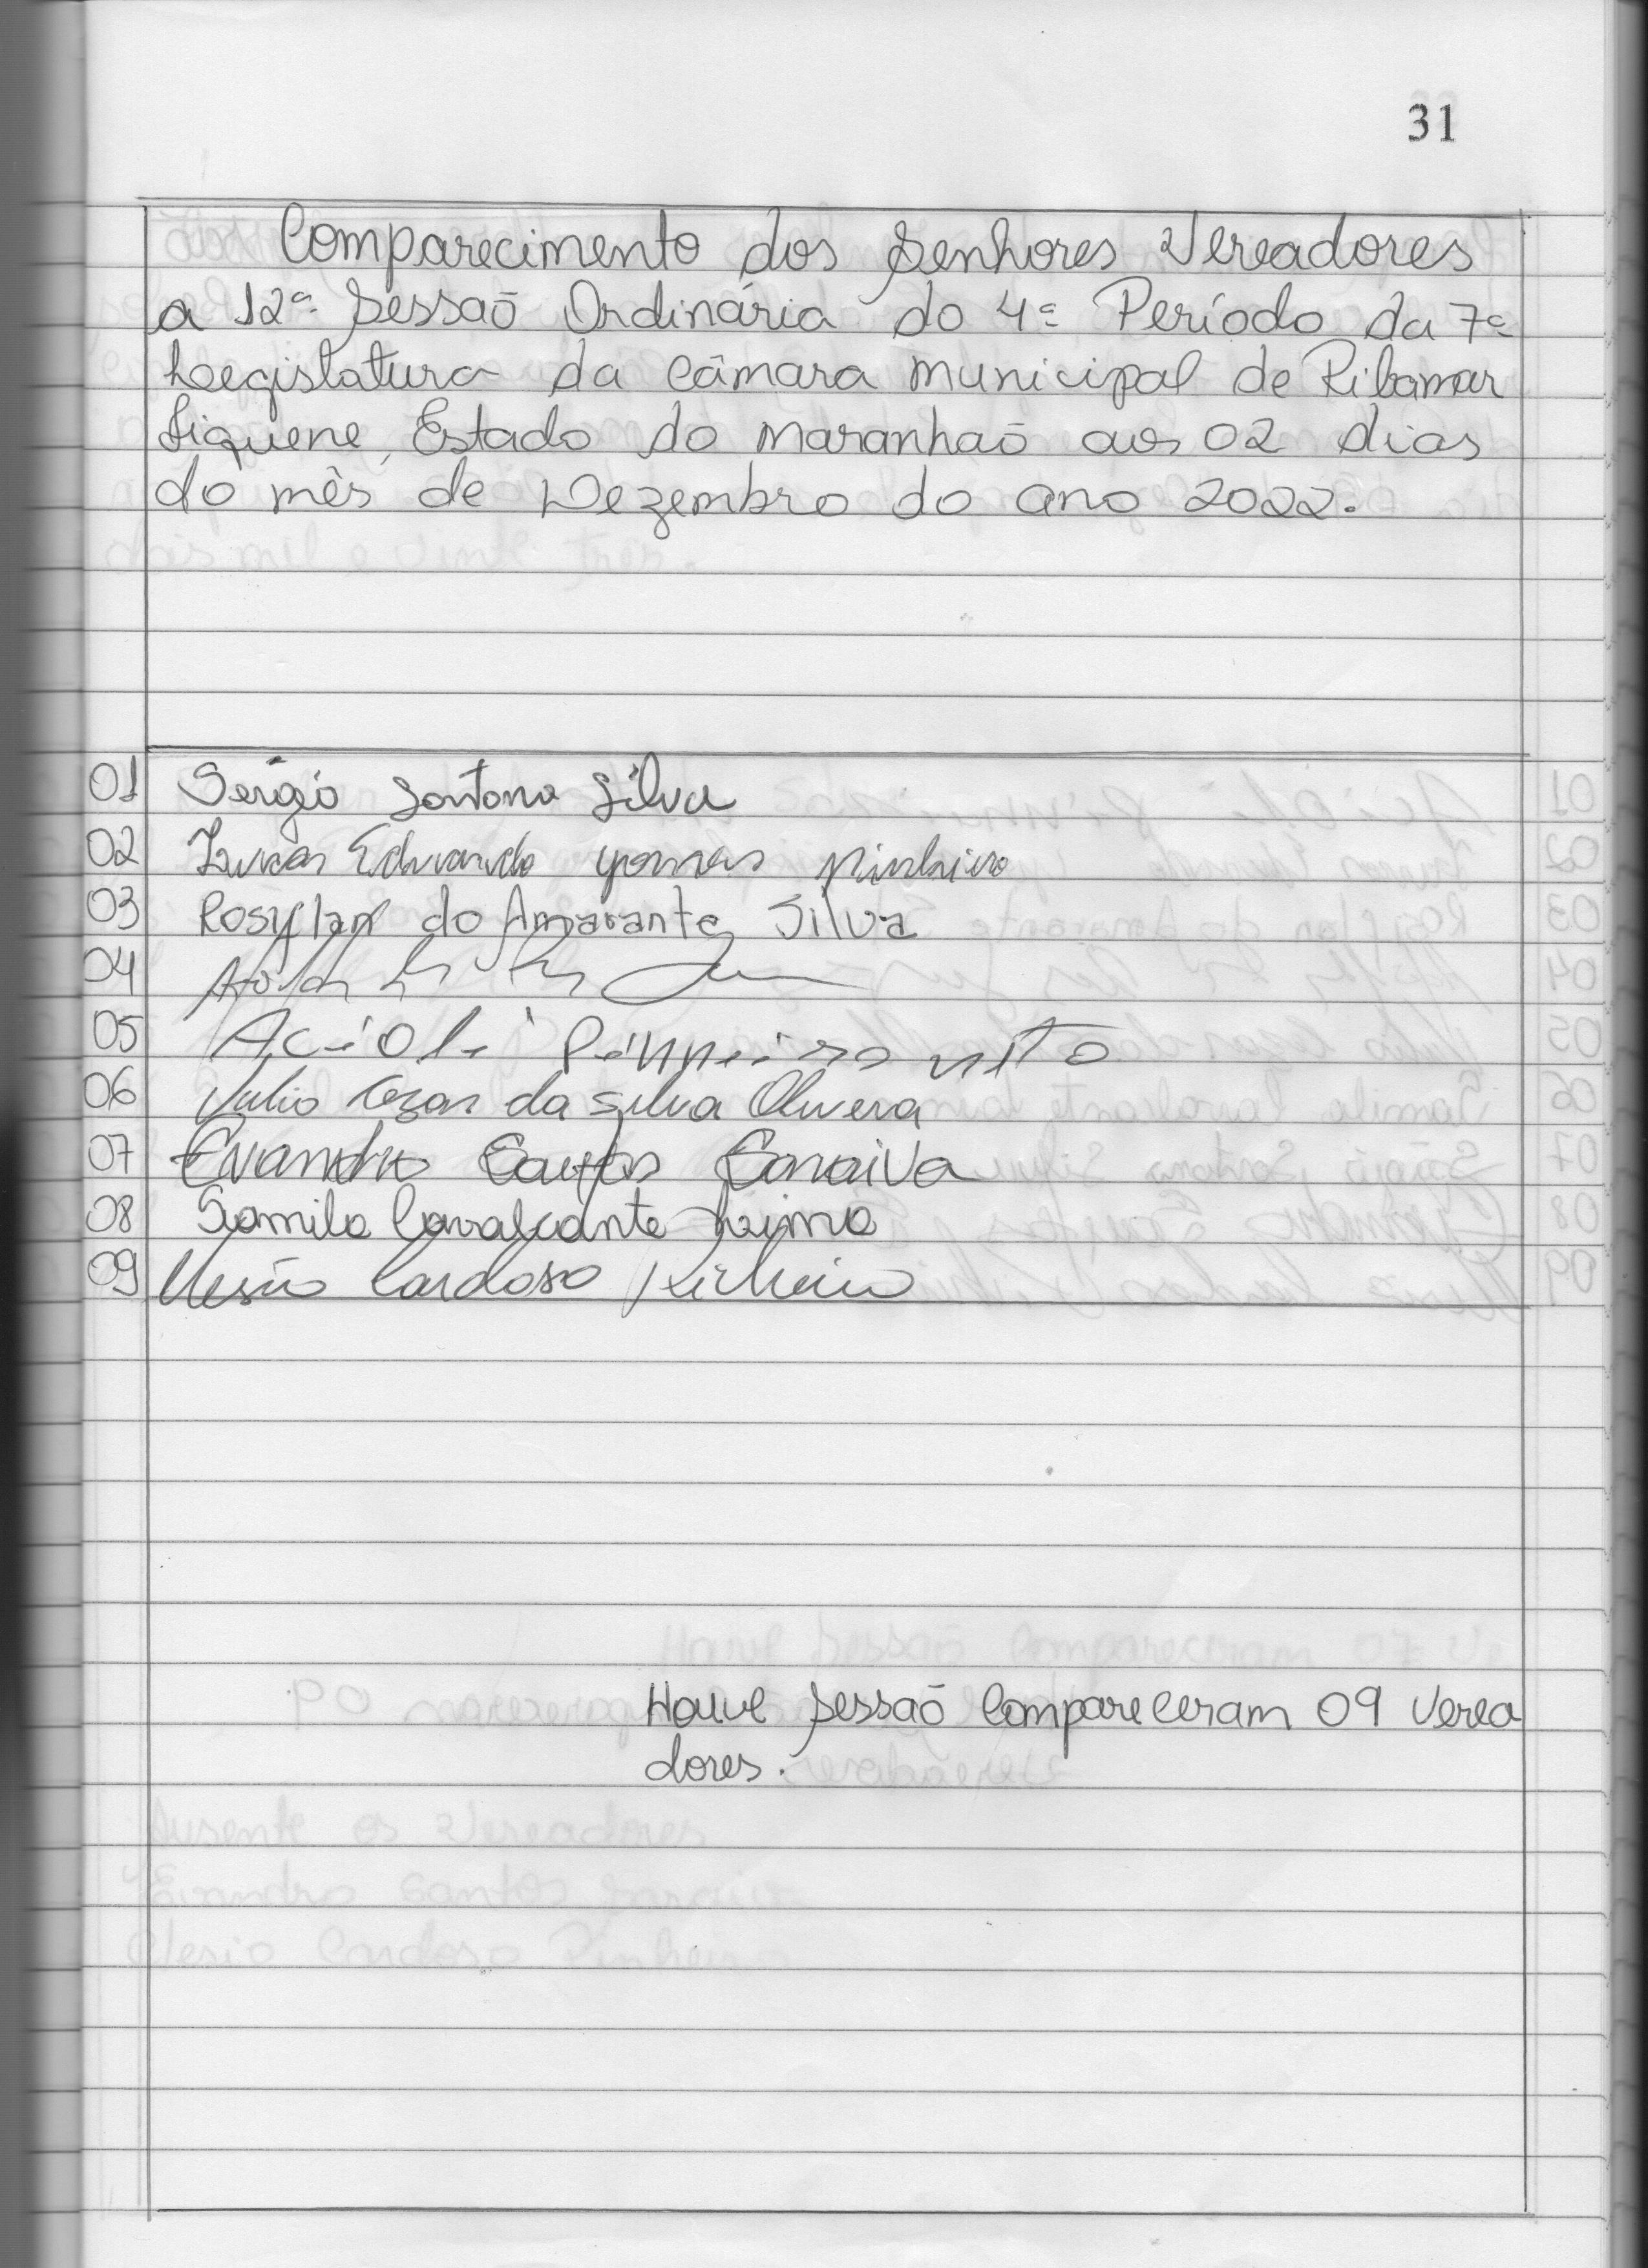 31
Comparecimento dos Senhores Vereadores
a 12ª Sessaõ Ordinária do 4º Período da 7ª
Legislatura da Câmara Municipal de Ribamar
Fiquene, Estado do Maranhaõ aos 02 dias
do mês de Dezembro do ano 2022.
01 Sergio Santana Silva
02 Lucas Eduardo gomes Pinheiro
03 Rosyflan do Amarante Silva
04
05 Acioli Pinheiro neto
06 Julio Cezar da Silva Olivera
07 Evandro Santos Saraiva
08 Samila Cavalcante Lima
09 Clesio Cardoso Pinheiro
Houve Sessaõ Compareceram 09 Verea
dores.